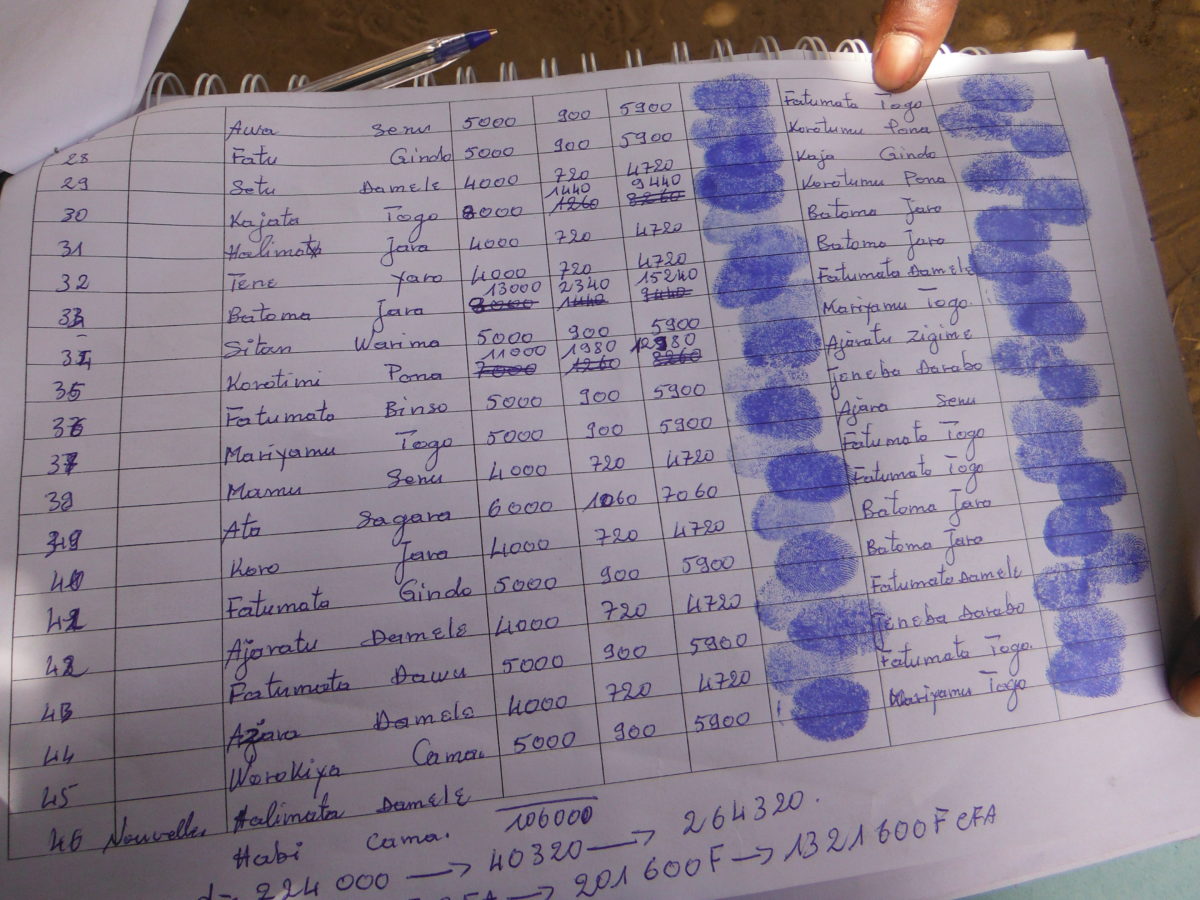 Awa Senu 5000 900 5900 Fatumata Togo
28 Fatu Gindo 5000 900 5900 Korotumu Pona
29 Setu Damele 4000 720 4720 Kaja Gindo
1440 9440
30 Kajata Togo 8000 1260 8260 Korotumu Pona
31 Halimata Jara 4000 720 4720 Batoma Jaro
32 Tene Yaro 4000 720 4720 Batoma Jaro
13000 2340 15240
33 Batoma Jara 8000 1440 9440 Fatumata Damele
34 Sitan Warima 5000 900 5900 Mariyamu Togo.
11000 1980 12980
35 Korotimi Pona 7000 1260 8260 Ajaratu Zigime
36 Fatumata Binso 5000 900 5900 Jeneba Darabo
37 Mariyamu Togo 5000 900 5900 Ajara Senu
38 Mamu Senu 4000 720 4720 Fatumata Togo
39 Ata Sagara 6000 1060 7060 Fatumata Togo
40 Koro Jara 4000 720 4720 Batoma Jaro
41 Fatumata Gindo 5000 900 5900 Batoma Jaro
42 Ajaratu Damele 4000 720 4720 Fatumata Damele
43 Fatumata Dawu 5000 900 5900 Jeneba Darabo
44 Azara Damele 4000 720 4720 Fatumata Togo.
45 Worokiya Cama. 5000 900 5900 Mariyamu Togo
46 Nouvelles Halimata Damele
Habi Cama. 106000
224 000 → 40320 → 264320.
→ 201 600F → 1321 600F CFA